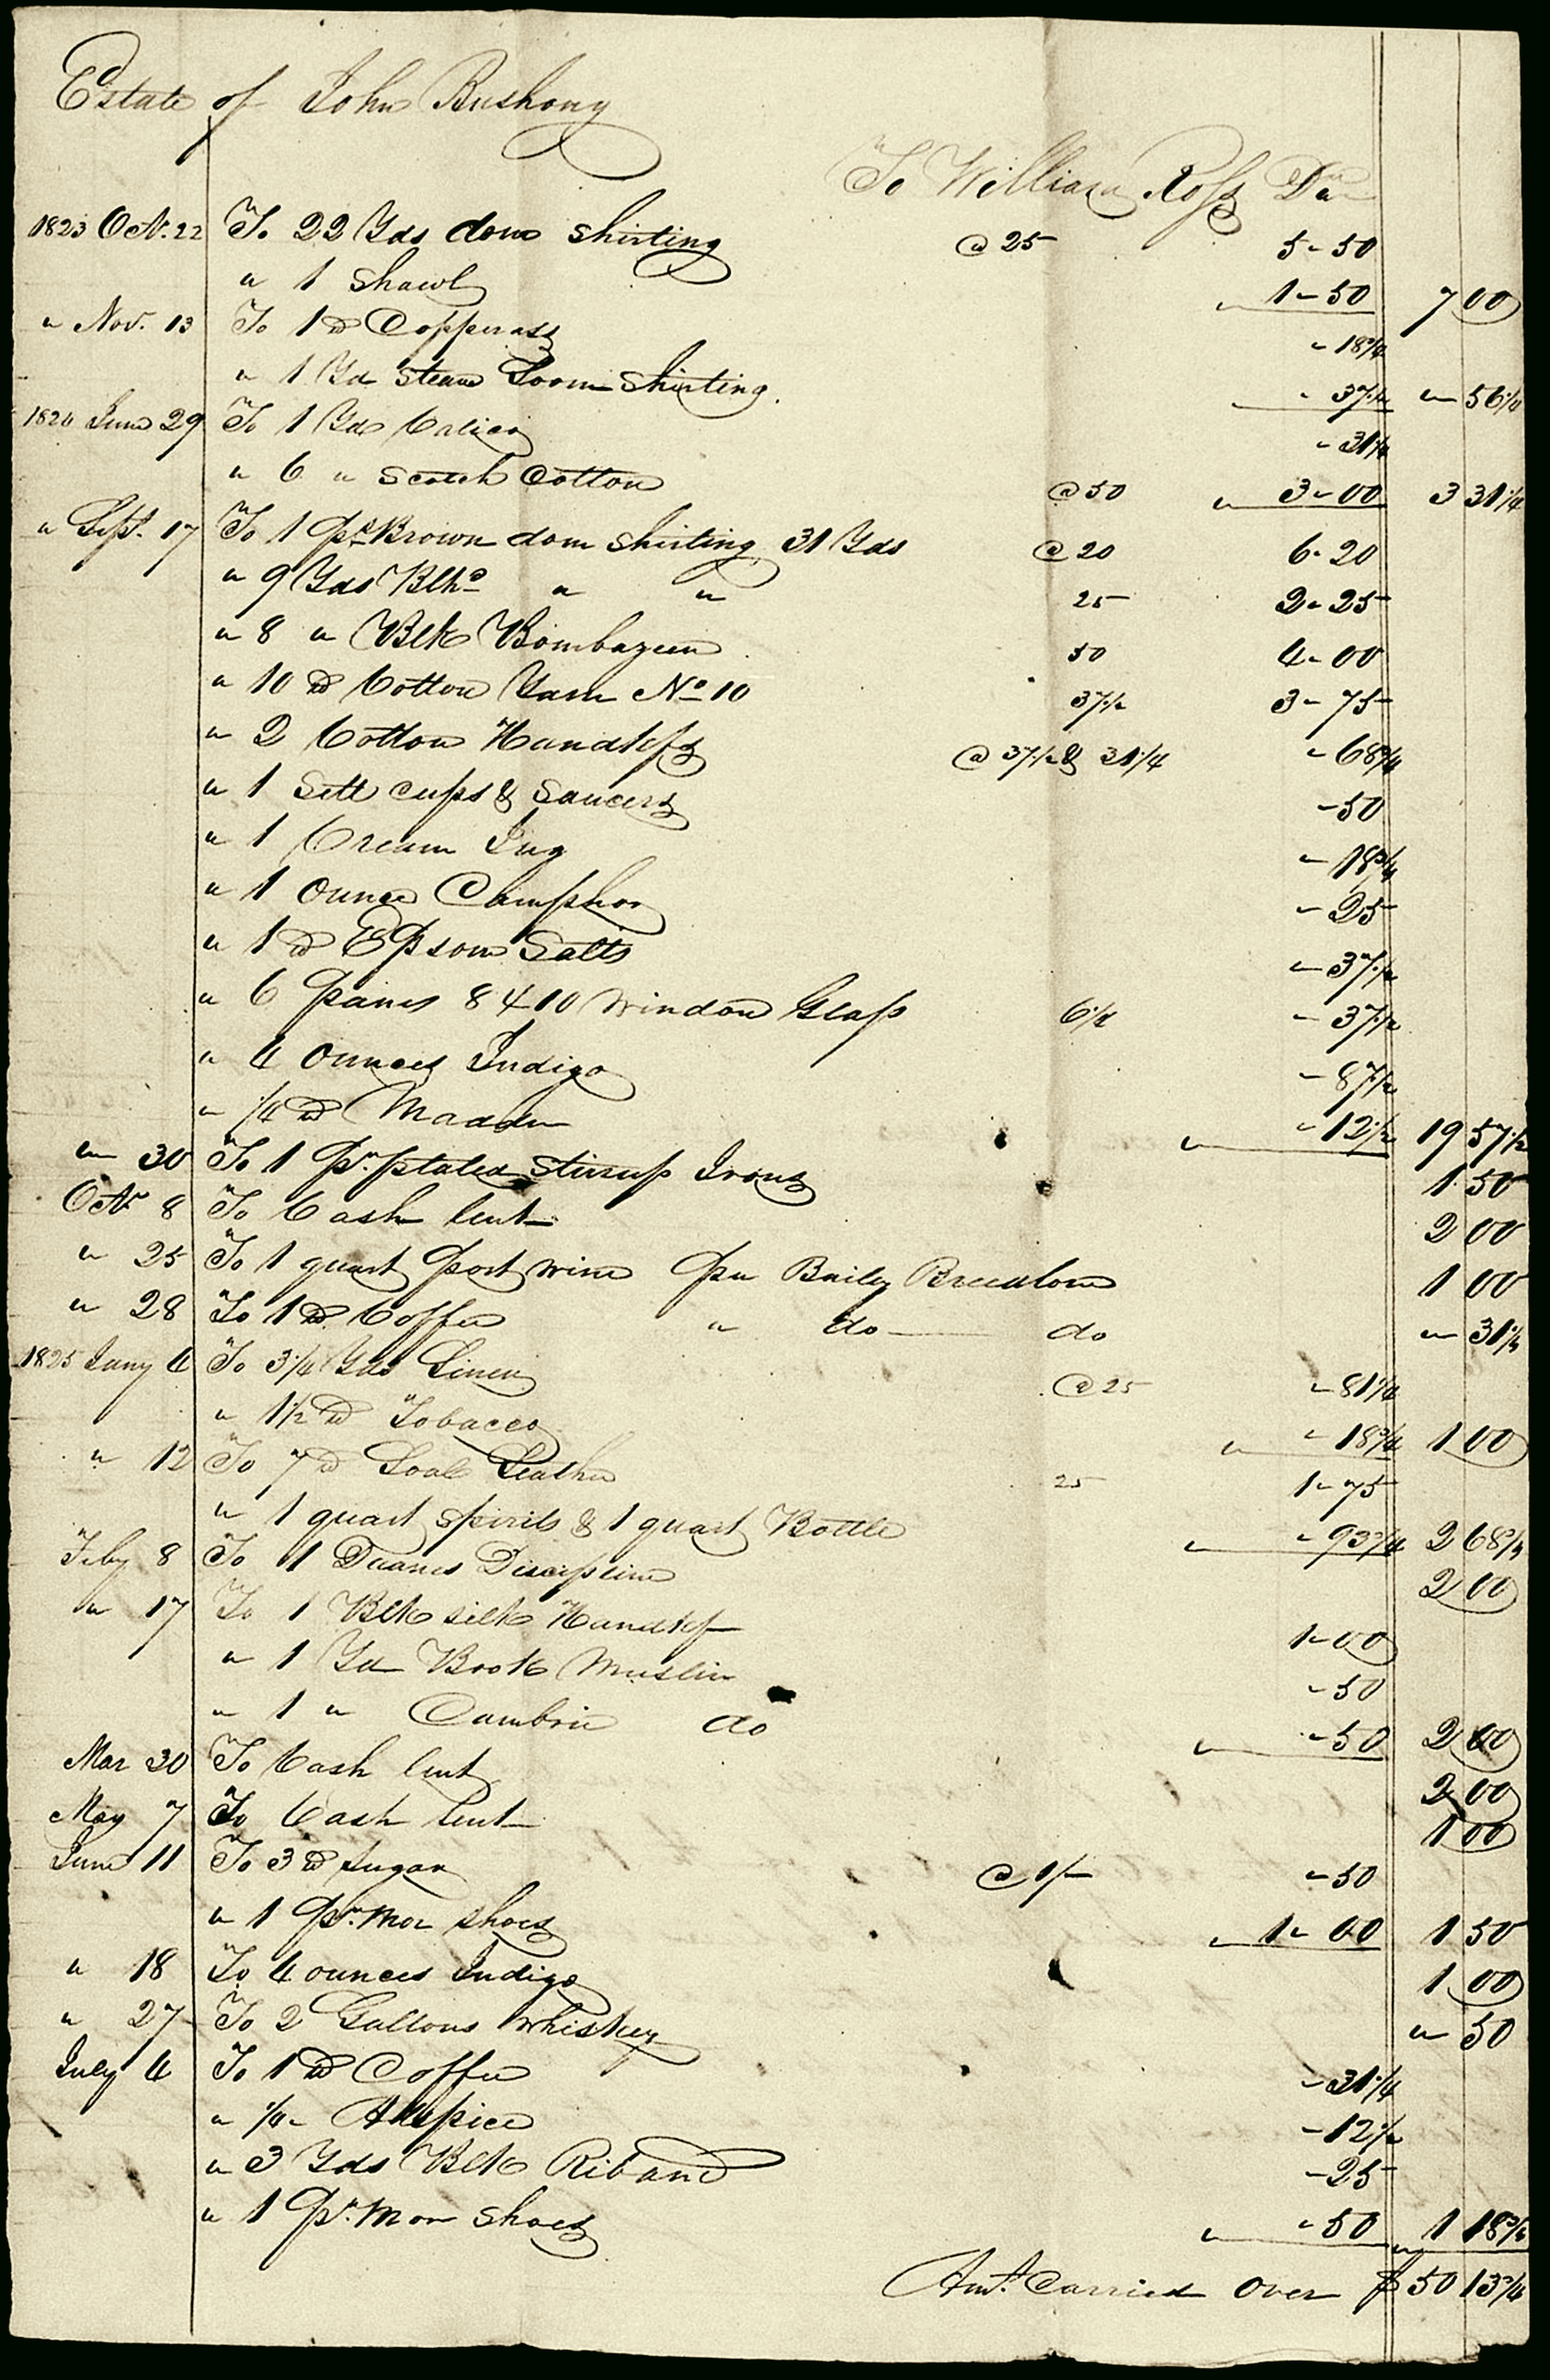 Estate of John Bushong
To William Ross Dr
1823 Oct. 22 To 22 Yds dom shirting @ 25 5-50
" 1 Shawl 1-50 7 00
" Nov. 13 To 1 lb Copperass - 18 3/4
" 1 Yd Steam Loom Shirting. - 37 1/2 - 56 1/4
1824 June 29 To 1 Yd Calico - 31 1/4
" 6 " Scotch Cotton @ 50 3-00 3 31 1/4
" Sept. 17 To 1 Ps Brown dom shirting 31 Yds @ 20 6-20
" 9 Yds Blhd " " 25 2-25
" 8 " Blk Bombazeen 50 4-00
" 10 lb Cotton Yarn No 10 37 1/2 3-75
" 2 Cotton Handkfs @ 37 1/2 & 31 1/4 - 68 3/4
" 1 Sett cups & Saucers - 50
" 1 Cream Jug - 18 3/4
" 1 Ounce Camphor - 25
" 1 lb Epsom Salts - 37 1/2
" 6 Panes 8 & 10 Window Glass 6 1/4 - 37 1/2
" 4 Ounces Indigo - 87 1/2
" 1/4 lb Madder - 12 1/2 19 57 1/2
" 30 To 1 Pr. plated Stirrup Irons 1 50
Octr 8 To Cash lent 2 00
" 25 To 1 quart Port wine Per Baily Breedlove 1 00
" 28 To 1 lb Coffee " do do - 31 1/4
1825 Jany 4 To 3 1/4 Yds Linen @ 25 - 81 1/4
" 1 1/2 lb Tobacco - 18 3/4 1 00
" 12 To 7 lb Soal Leather 25 1-75
" 1 quart spirits & 1 quart Bottle - 93 3/4 2 68 3/4
Feby 8 To 1 Duanes Discipline 2 00
" 17 To 1 Blk silk Handkf 1-00
" 1 Yd Book Muslin - 50
" 1 " Cambric do - 50 2 00
Mar 30 To Cash lent 2 00
May 7 To Cash lent 1 00
June 11 To 3 lb Sugar @ 1/- - 50
" 1 Pr. Mor shoes 1-00 1 50
" 18 To 4 ounces Indigo 1 00
" 27 To 2 Gallons Whiskey - 50
July 4 To 1 lb Coffee - 31 1/4
" 1/4 " Allspice - 12 1/2
" 3 Yds Blk Riband - 25
" 1 Pr. Mor Shoes - 50 1 18 3/4
Amt. Carried Over $ 50 13 3/4